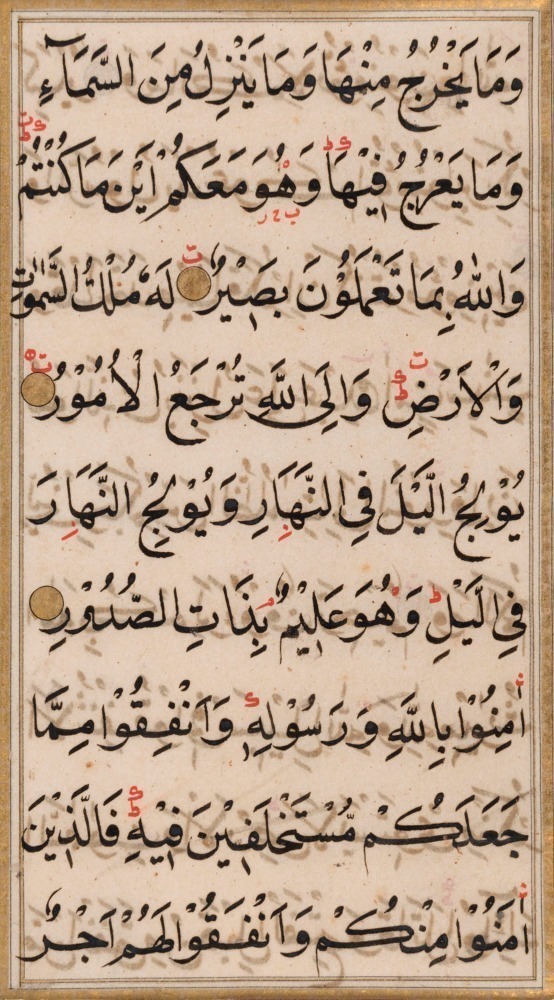 وَمَا يَخْرُجُ مِنْهَا وَمَا يَنْزِلُ مِنَ السَّمَآءِ
وَمَا يَعْرُجُ فِيْهَا وَهُوَ مَعَكُمْ اَيْنَ مَا كُنْتُمْ
وَاللّٰهُ بِمَا تَعْمَلُوْنَ بَصِيْرٌ لَهٗ مُلْكُ السَّمٰوٰتِ
وَالْاَرْضِ وَاِلَى اللّٰهِ تُرْجَعُ الْاُمُوْرُ
يُوْلِجُ الَّيْلَ فِى النَّهَارِ وَيُوْلِجُ النَّهَارَ
فِى الَّيْلِ وَهُوَ عَلِيْمٌ بِذَاتِ الصُّدُوْرِ
اٰمِنُوْا بِاللّٰهِ وَرَسُوْلِهٖ وَاَنْفِقُوْا مِمَّا
جَعَلَكُمْ مُّسْتَخْلَفِيْنَ فِيْهِ فَالَّذِيْنَ
اٰمَنُوْا مِنْكُمْ وَاَنْفَقُوْا لَهُمْ اَجْرٌ